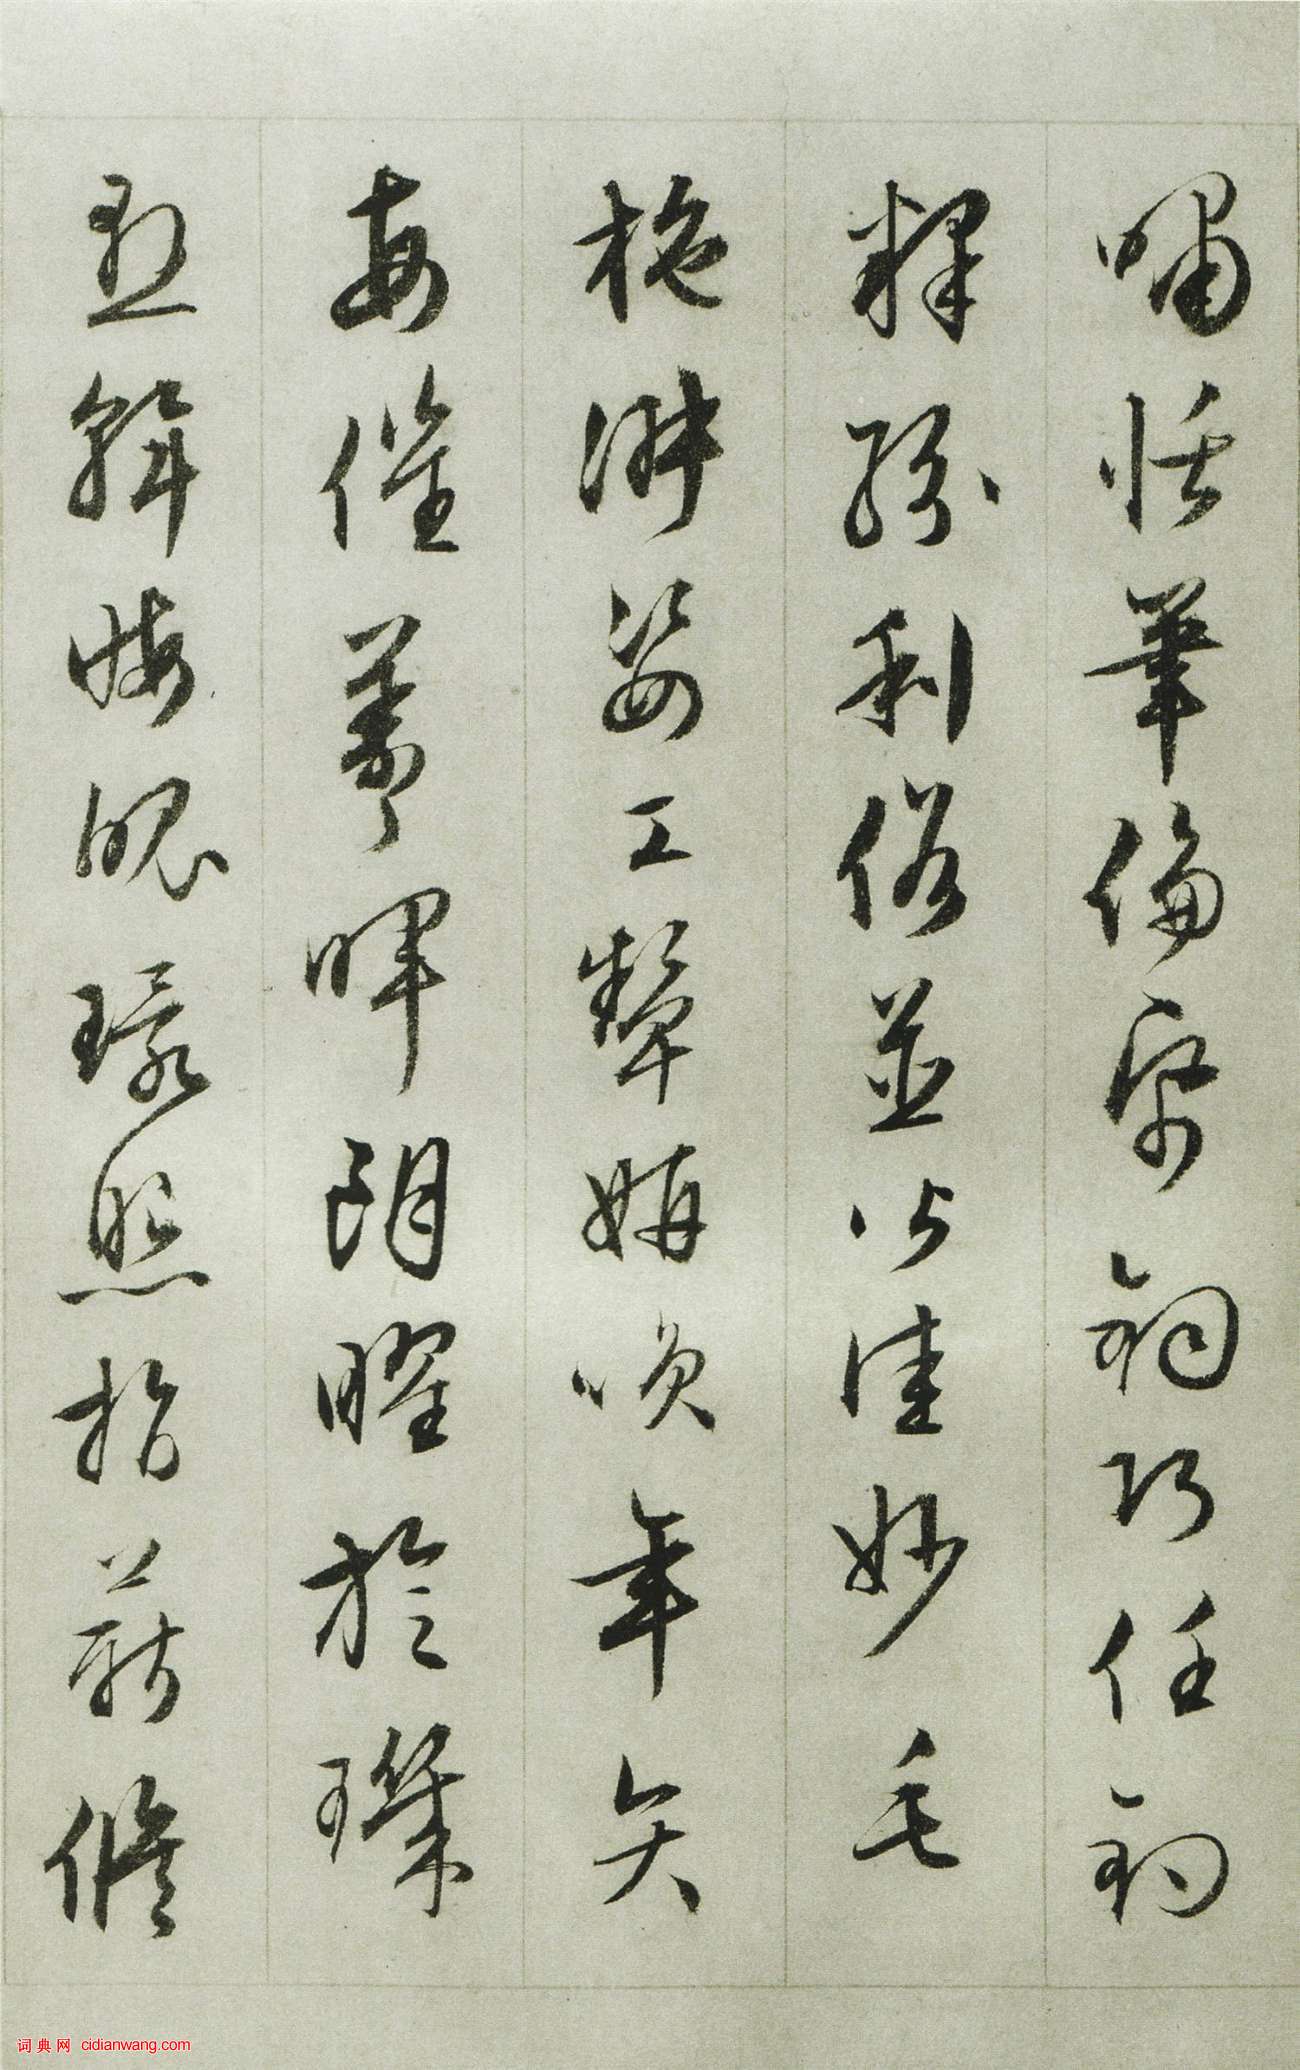 嘯恬筆倫帋鈞巧任釣
釋紛利俗並皆佳妙毛
施淑姿工顰妍咲年矢
每催羲暉朗曜旋璣
懸斡晦魄環照指薪脩
词典网 cidianwang.com